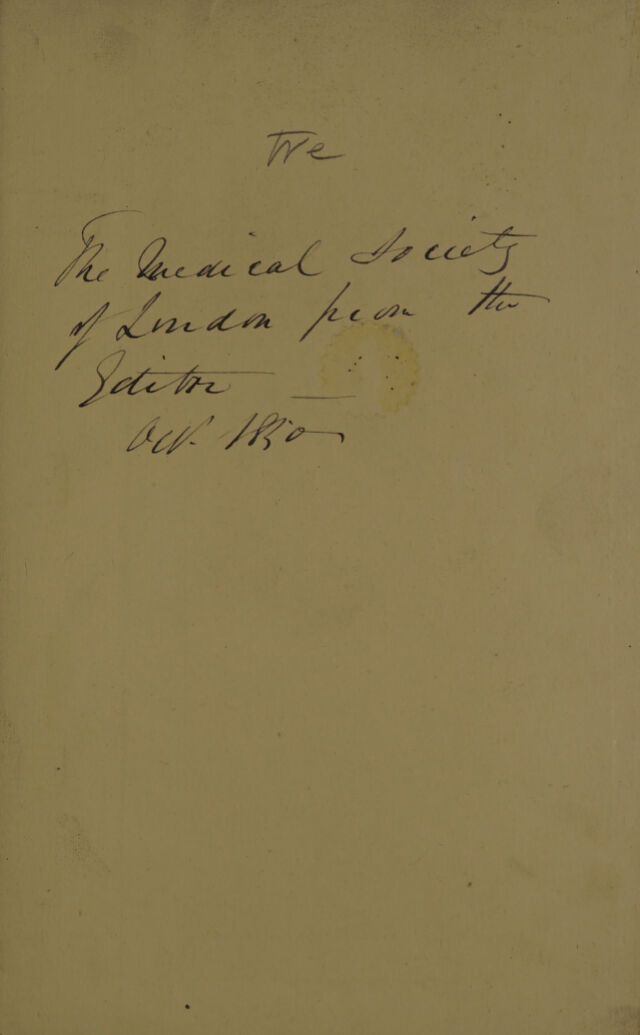 Tre
The Medical Society
of London from the
Editor —
Oct. 1850